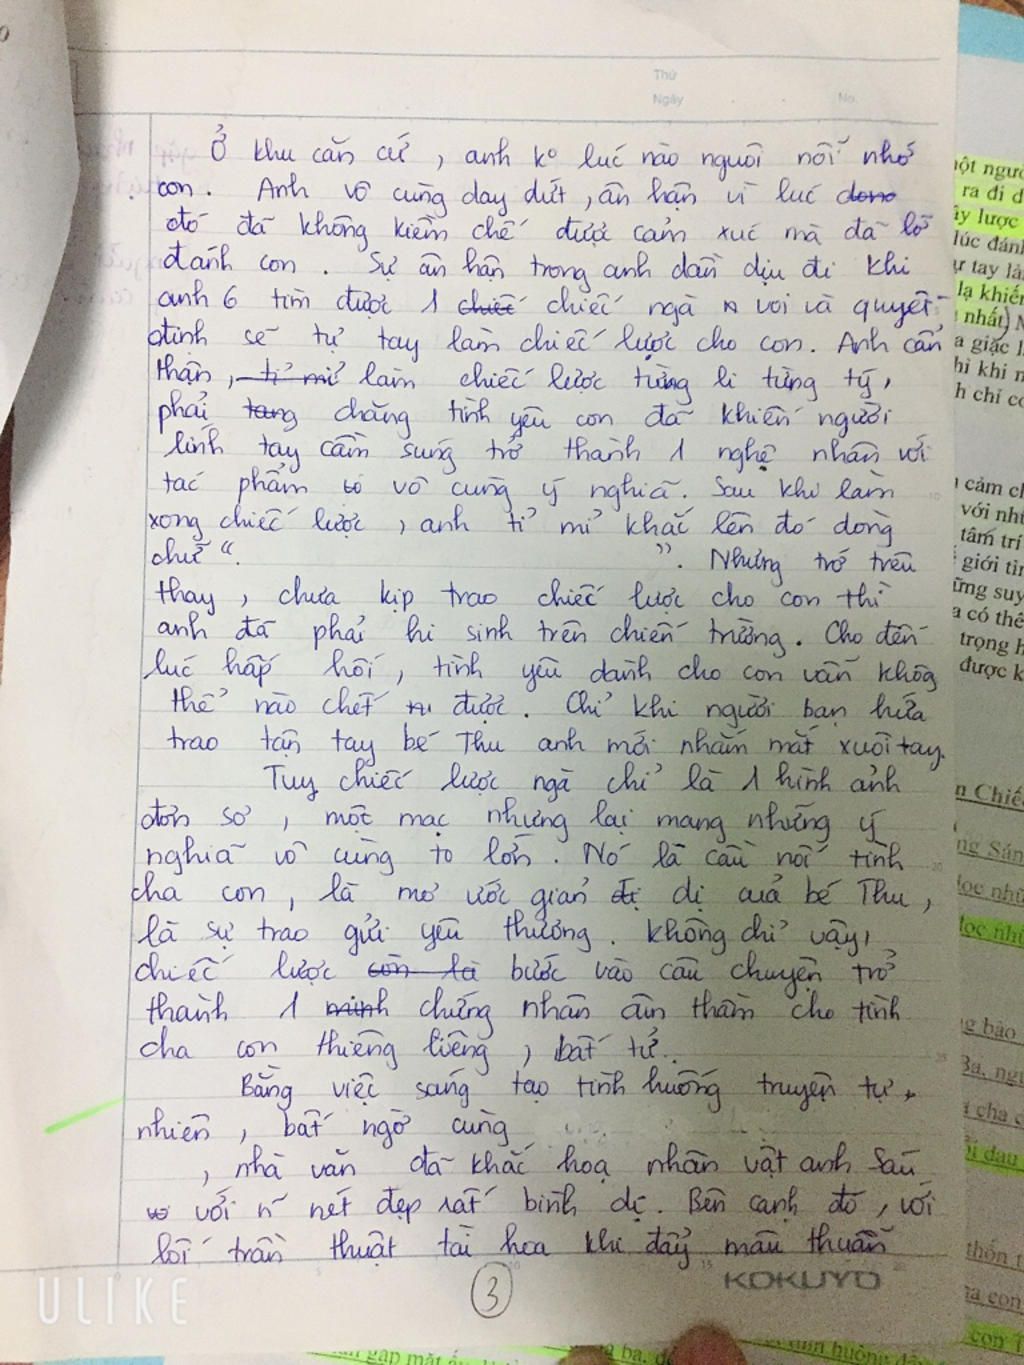 Thứ
Ngày No.
Ở khu căn cứ, anh kº lúc nào nguôi nỗi nhớ
con. Anh vô cùng day dứt, ân hận vì lúc
đó đã không kiềm chế được cảm xúc mà đã lỡ
đánh con. Sự ân hận trong anh dần dịu đi khi
anh 6 tìm được 1 chiếc ngà voi và quyết
định sẽ tự tay làm chiếc lược cho con. Anh cẩn
thận, làm chiếc lược từng li từng tý,
phải chăng tình yêu con đã khiến người
lính tay cầm súng trở thành 1 nghệ nhân với
tác phẩm vô cùng ý nghĩa. Sau khi làm
xong chiếc lược, anh tỉ mỉ khắc lên đó dòng
chữ “. ”. Nhưng trớ trêu
thay, chưa kịp trao chiếc lược cho con thì
anh đã phải hi sinh trên chiến trường. Cho đến
lúc hấp hối, tình yêu dành cho con vẫn không
thể nào chết được. Chỉ khi người bạn hứa
trao tận tay bé Thu anh mới nhắm mắt xuôi tay.
Tuy chiếc lược ngà chỉ là 1 hình ảnh
đơn sơ, mộc mạc nhưng lại mang những ý
nghĩa vô cùng to lớn. Nó là cầu nối tình
cha con, là mơ ước giản dị của bé Thu,
là sự trao gửi yêu thương. Không chỉ vậy,
chiếc lược bước vào câu chuyện trở
thành 1 chứng nhân âm thầm cho tình
cha con thiêng liêng, bất tử.
Bằng việc sáng tạo tình huống truyện tự
nhiên, bất ngờ cùng
, nhà văn đã khắc hoạ nhân vật anh Sáu
với n~ nét đẹp rất bình dị. Bên cạnh đó, với
lối trần thuật tài hoa khi đẩy mâu thuẫn
3
KOKUYO
ULIKE